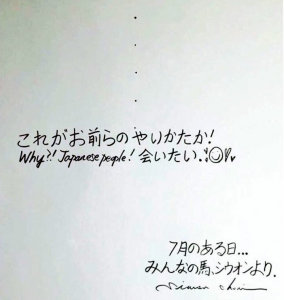 これがお前らのやりかたか!
Why?! Japanese people! 会いたい.
7月のある日...
みんなの馬、シウォンより.